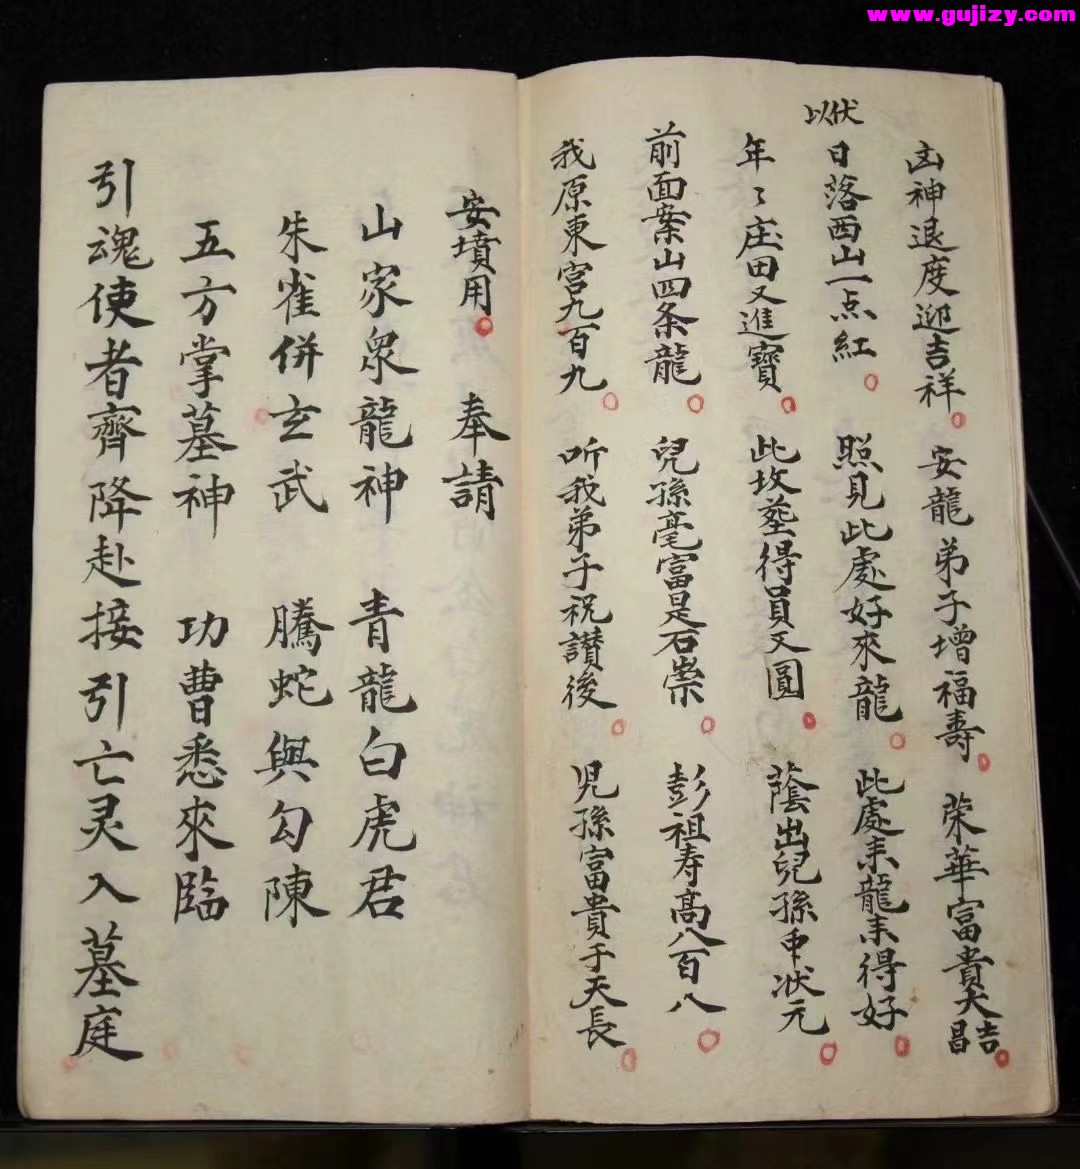 www.gujizy.com
凶神退度迎吉祥 安龍弟子增福壽 荣華富貴大吉昌
伏以
日落西山一点紅 照見此處好來龍 此處耒龍耒得好
年〻庄田又進寶 此坟塟得員又圓 蔭出兒孫中状元
前面案山四条龍 兒孫毫富是石崇 彭祖寿髙八百八
我原東宫九百九 听我弟子祝讃後 児孫富貴于天長
安墳用 奉請
山家眾龍神 青龍白虎君
朱雀併玄武 騰蛇與勾陳
五方掌墓神 功曹悉來臨
引魂使者齊降赴接引亡灵入墓庭